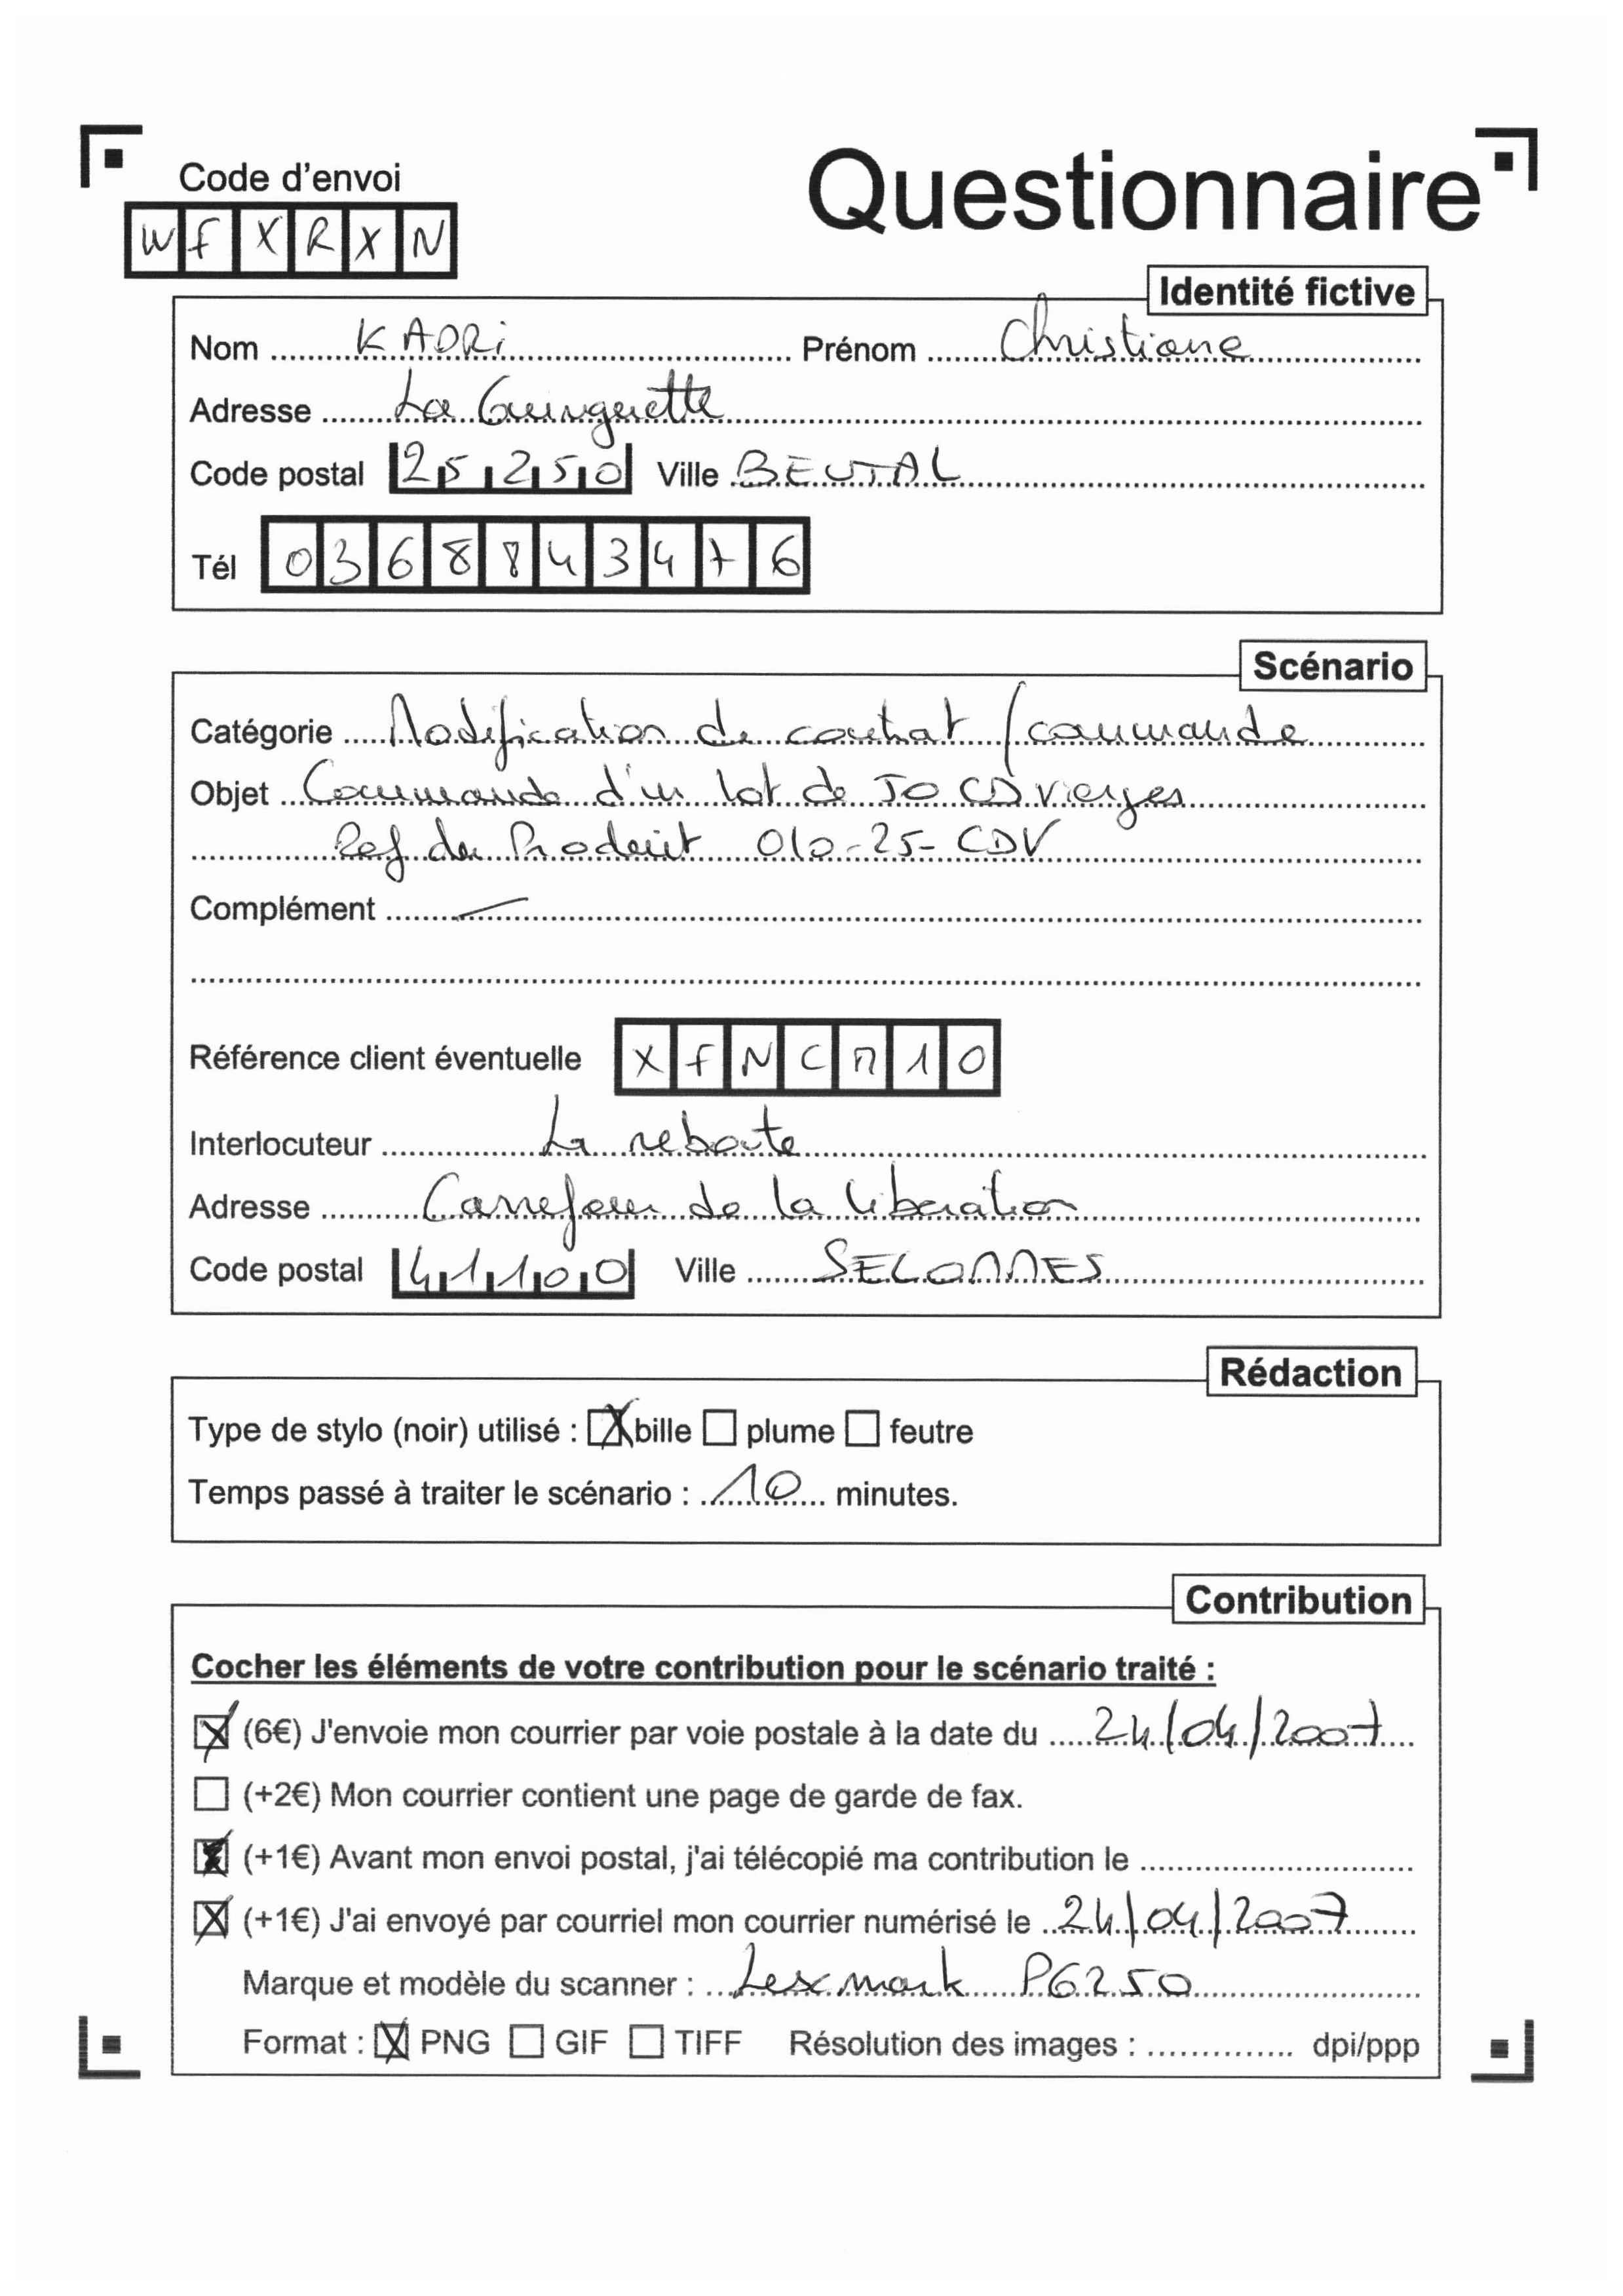 Questionnaire
Code d'envoi
W F X R X N
Identité fictive
Nom KADRI Prénom Christiane
Adresse La Guinguette
Code postal 25250 Ville BEUTAL
Tél 0368843476
Scénario
Catégorie Modification de contrat / commande
Objet Commande d'un lot de 50 CD vierges
Ref du Produit 010-25-CDV
Complément
Référence client éventuelle X F N C M 1 0
Interlocuteur La reboute
Adresse Carrefour de la libération
Code postal 41100 Ville SELOMMES
Rédaction
Type de stylo (noir) utilisé : bille plume feutre
Temps passé à traiter le scénario : 10 minutes.
Contribution
Cocher les éléments de votre contribution pour le scénario traité :
(6€) J'envoie mon courrier par voie postale à la date du 24/04/2007
(+2€) Mon courrier contient une page de garde de fax.
(+1€) Avant mon envoi postal, j'ai télécopié ma contribution le
(+1€) J'ai envoyé par courriel mon courrier numérisé le 24/04/2007
Marque et modèle du scanner : Lexmark P6250
Format : PNG GIF TIFF Résolution des images : dpi/ppp